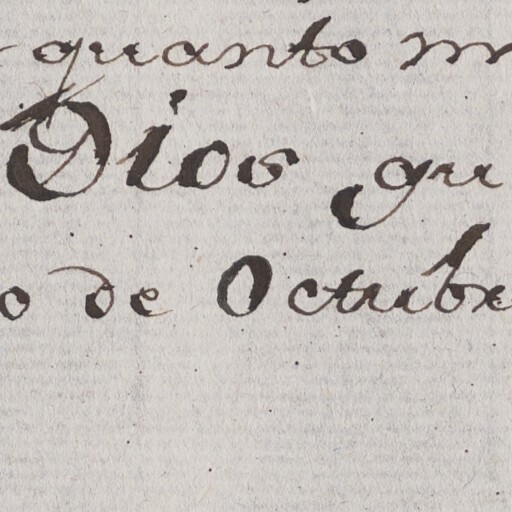 quanto m
Dios gu
o de Octubre